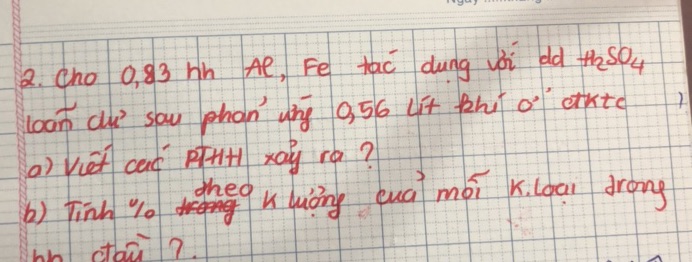 2. Cho 0,83 hh Al, Fe tác dụng với dd H₂SO₄
loãn dư sau phản ứng 0,56 Lít khí ở đktc
a) Viết các PTHH xảy ra ?
b) Tính % theo k lượng của mỗi K.loại trong
hh đầu ?